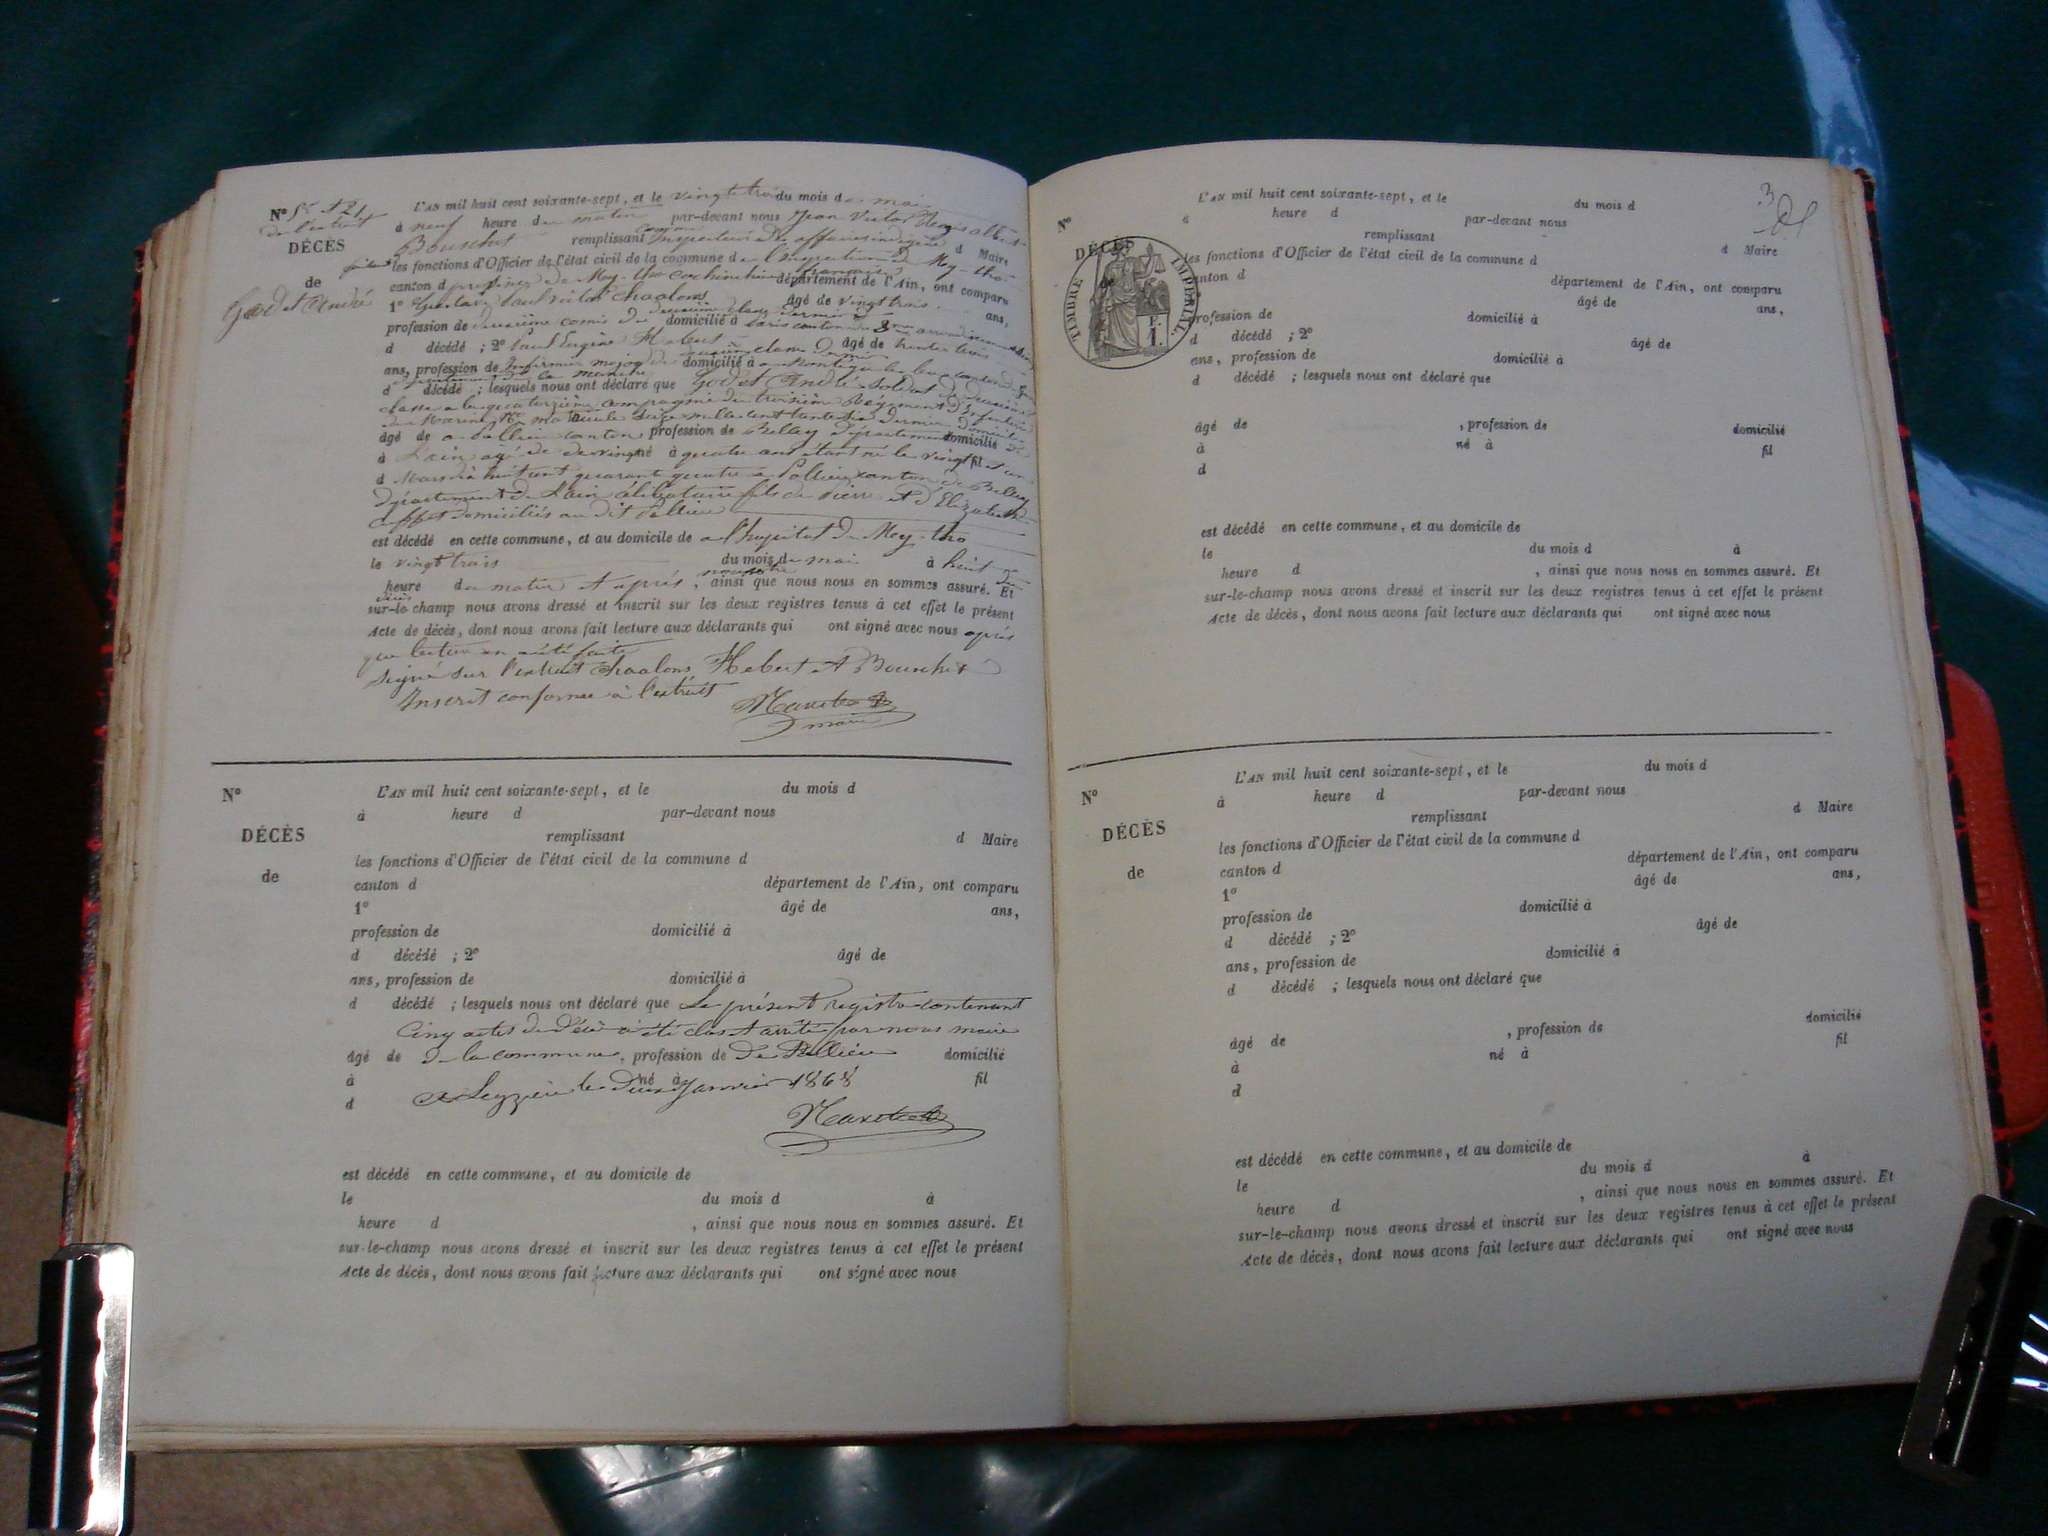 N° 5 et 21
de l'extrait
DÉCÈS
de
Godet André
L'AN mil huit cent soixante-sept, et le vingt trois du mois de mai
à neuf heure du matin par-devant nous Jean Victor Albert
Bouschet remplissant comme Inspecteur des affaires indigènes d Maire
les fonctions d'Officier de l'état civil de la commune de l'Inspection de Mey-tho
canton d province de Mey-tho cochinchine française département de l'Ain, ont comparu
1° Gustave Paul Victor Chaalons âgé de vingt trois ans,
profession de deuxième commis de deuxième classe domicilié à Paris canton du arrondissement
d décédé ; 2° Paul Eugène Hébert âgé de trente trois
ans, profession de Infirmier major de domicilié à
d décédé ; lesquels nous ont déclaré que Godet André soldat de deuxième
classe à la quatorzième compagnie du troisième Régiment d'Infanterie
de Marine N° matricule seize mille cent trente dernier domicile
âgé de à Pollieu canton profession de Belley département domicilié de
à l'ain agé de de vingt né à quatre ans étant né le vingt fil
d Mars mil huit cent quarante quatre à Pollieu canton de Belley
département de l'ain célibataire fils de Pierre et d'Elizabeth
domiciliés au dit Pollieu
est décédé en cette commune, et au domicile de à l'hopital de Mey-tho
le vingt trois du mois de mai à huit
heure du matin et après nous être , ainsi que nous nous en sommes assuré. Et
sur-le-champ nous avons dressé et inscrit sur les deux registres tenus à cet effet le présent
Acte de décès, dont nous avons fait lecture aux déclarants qui ont signé avec nous après
que lecture en a été faite
signé sur l'extrait Chaalons, Hébert et Bouschet
Inscrit conforme à l'extrait
maire
N°
DÉCÈS
de
L'AN mil huit cent soixante-sept, et le du mois d
à heure d par-devant nous
remplissant d Maire
les fonctions d'Officier de l'état civil de la commune d
canton d département de l'Ain, ont comparu
1° âgé de ans,
profession de domicilié à
d décédé ; 2° âgé de
ans, profession de domicilié à
d décédé ; lesquels nous ont déclaré que Le présent registre contenant
Cinq actes de décès a été clos et arrêté par nous maire
âgé de de la commune , profession de de Pollieu domicilié
à né à fil
d A Leyzieu le Deux Janvier 1868
est décédé en cette commune, et au domicile de
le du mois d à
heure d , ainsi que nous nous en sommes assuré. Et
sur-le-champ nous avons dressé et inscrit sur les deux registres tenus à cet effet le présent
Acte de décès, dont nous avons fait lecture aux déclarants qui ont signé avec nous
3
N°
DÉCÈS
de
TIMBRE IMPÉRIAL
F.
1.
L'AN mil huit cent soixante-sept, et le du mois d
à heure d par-devant nous
remplissant d Maire
les fonctions d'Officier de l'état civil de la commune d
canton d département de l'Ain, ont comparu
âgé de ans,
profession de domicilié à
d décédé ; 2° âgé de
ans, profession de domicilié à
d décédé ; lesquels nous ont déclaré que
âgé de , profession de domicilié
à né à fil
d
est décédé en cette commune, et au domicile de
le du mois d à
heure d , ainsi que nous nous en sommes assuré. Et
sur-le-champ nous avons dressé et inscrit sur les deux registres tenus à cet effet le présent
Acte de décès, dont nous avons fait lecture aux déclarants qui ont signé avec nous
N°
DÉCÈS
de
L'AN mil huit cent soixante-sept, et le du mois d
à heure d par-devant nous
remplissant d Maire
les fonctions d'Officier de l'état civil de la commune d
canton d département de l'Ain, ont comparu
1° âgé de ans,
profession de domicilié à
d décédé ; 2° âgé de
ans, profession de domicilié à
d décédé ; lesquels nous ont déclaré que
âgé de , profession de domicilié
à né à fil
d
est décédé en cette commune, et au domicile de
le du mois d à
heure d , ainsi que nous nous en sommes assuré. Et
sur-le-champ nous avons dressé et inscrit sur les deux registres tenus à cet effet le présent
Acte de décès, dont nous avons fait lecture aux déclarants qui ont signé avec nous